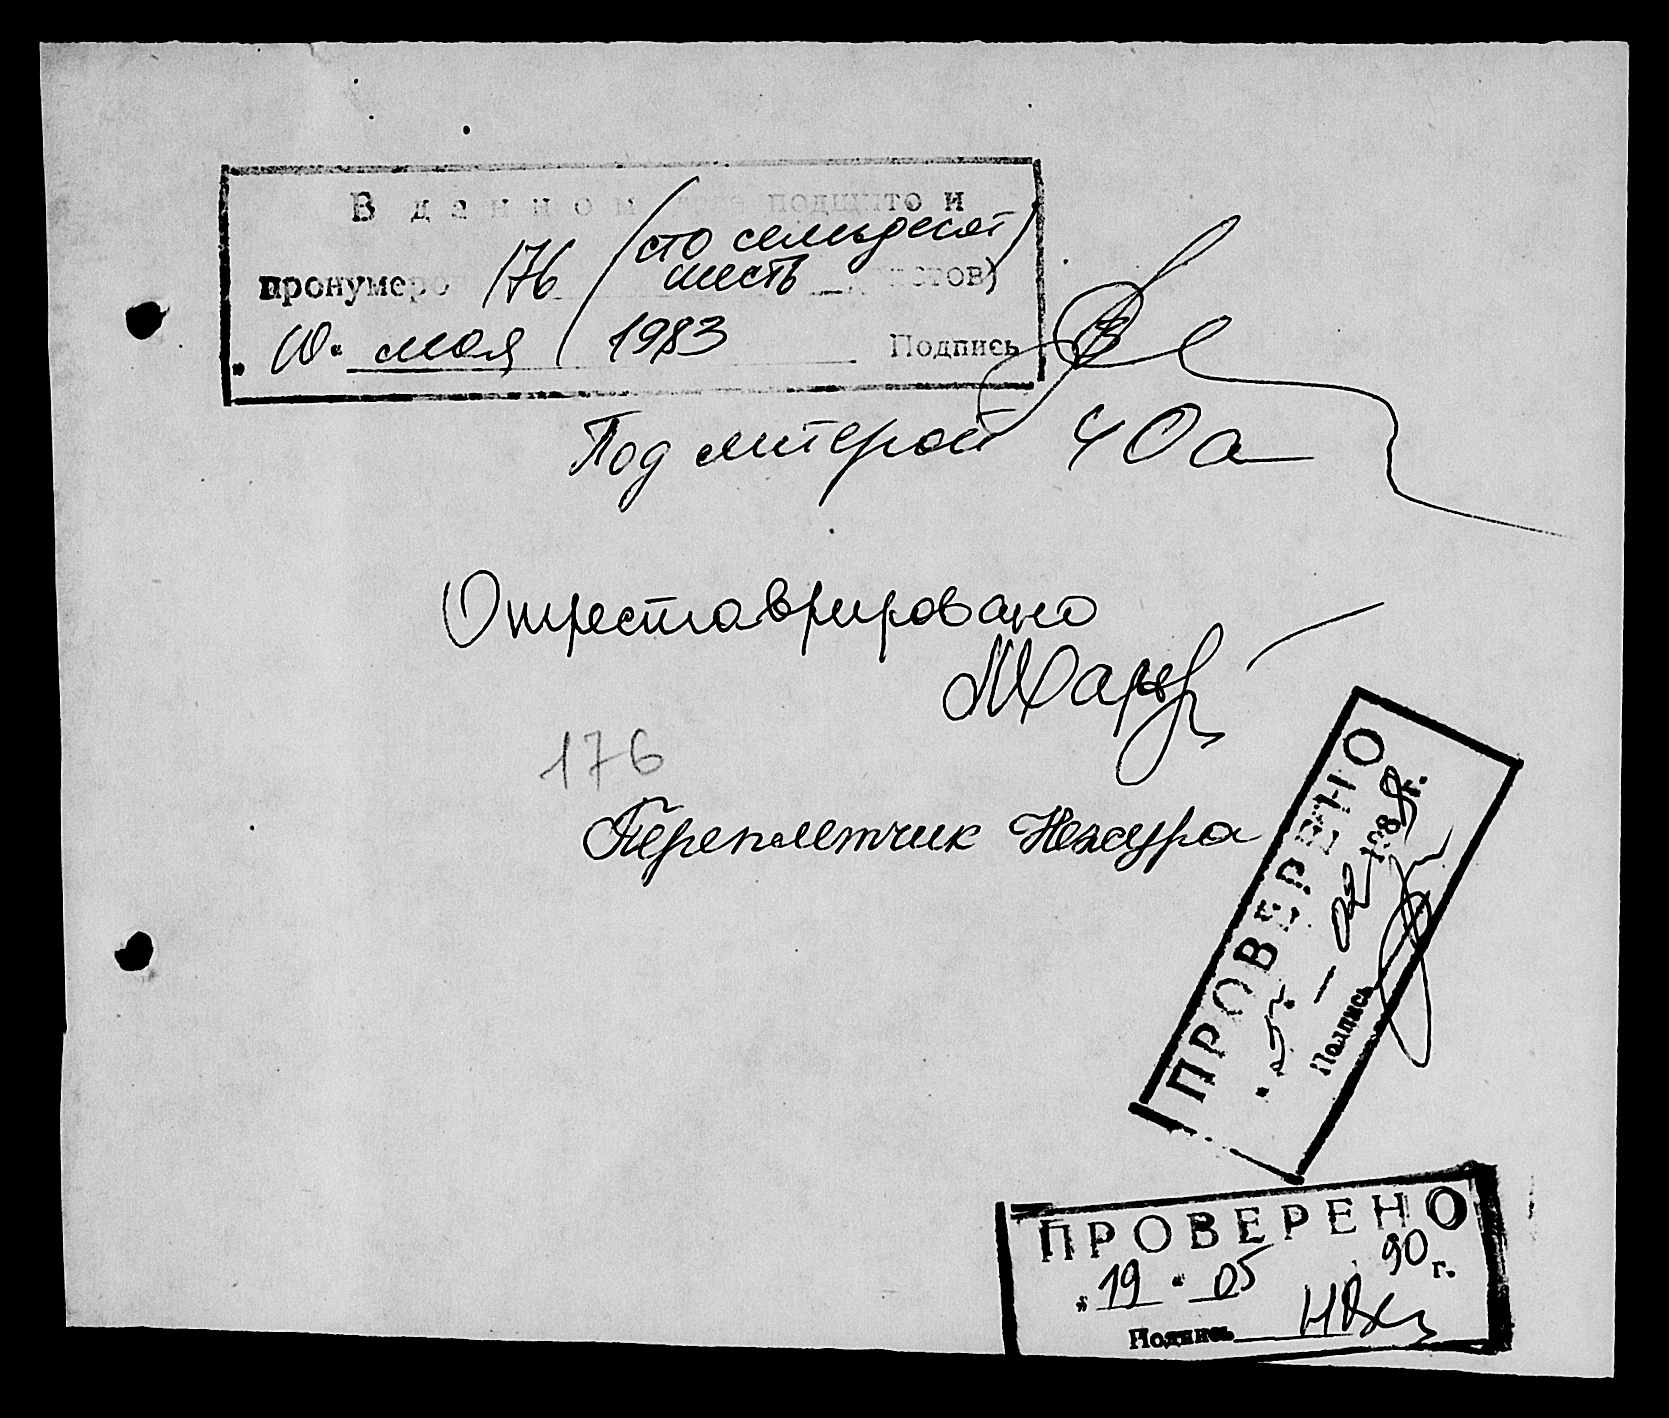 В данном подшито и
пронумеро 176 (сто семьдесят
шесть листов)
„10“ мая 1983 Подпись
Под литерой 40а
Отреставрировано
176
Переплетчик Нежура
ПРОВЕРЕНО
02 198 г.
Подпись
ПРОВЕРЕНО
„19“ 05 90 г.
Подпись